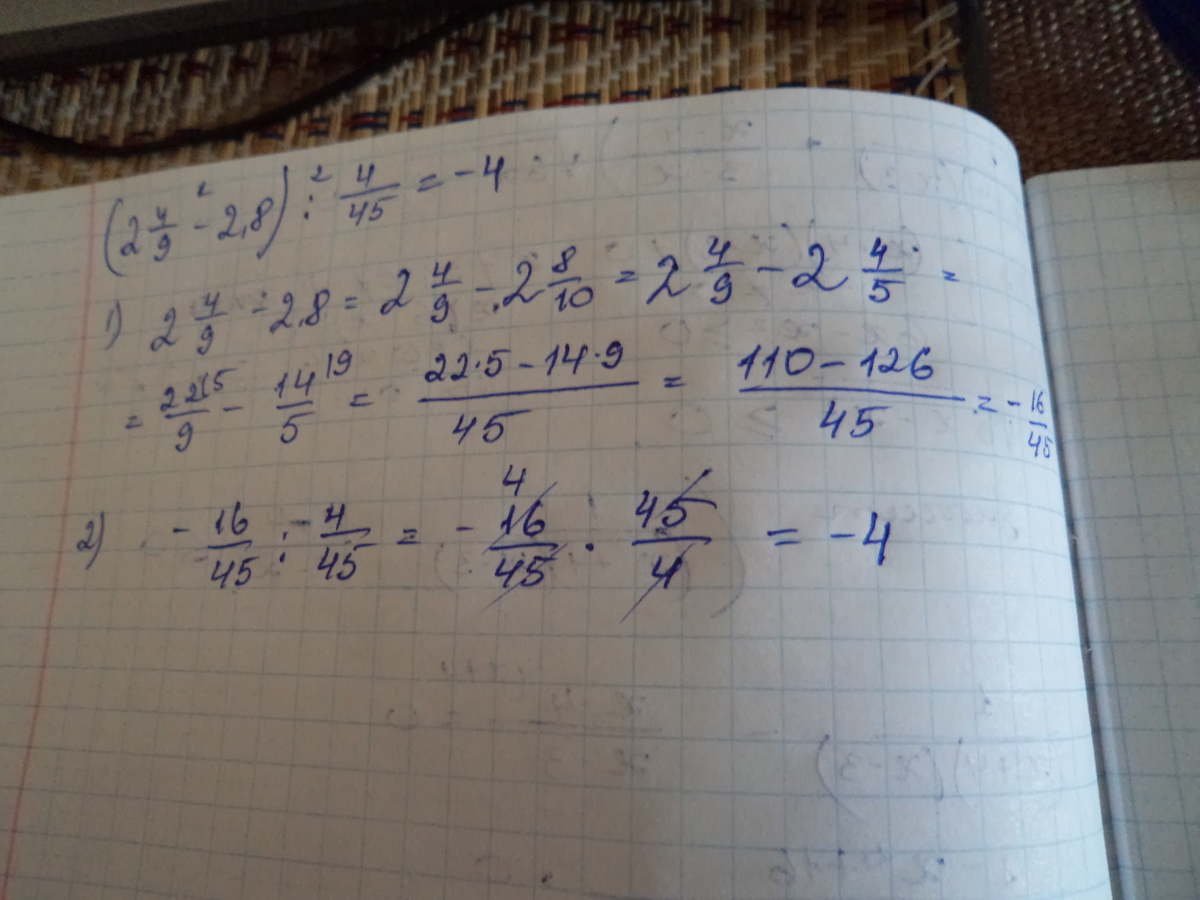 (2 4/9 - 2,8) : 4/45 = -4
1) 2 4/9 - 2,8 = 2 4/9 - 2 8/10 = 2 4/9 - 2 4/5 =
= 22/9 - 14/5 = (22·5 - 14·9)/45 = (110 - 126)/45 = -16/45
2) -16/45 : 4/45 = -16/45 · 45/4 = -4